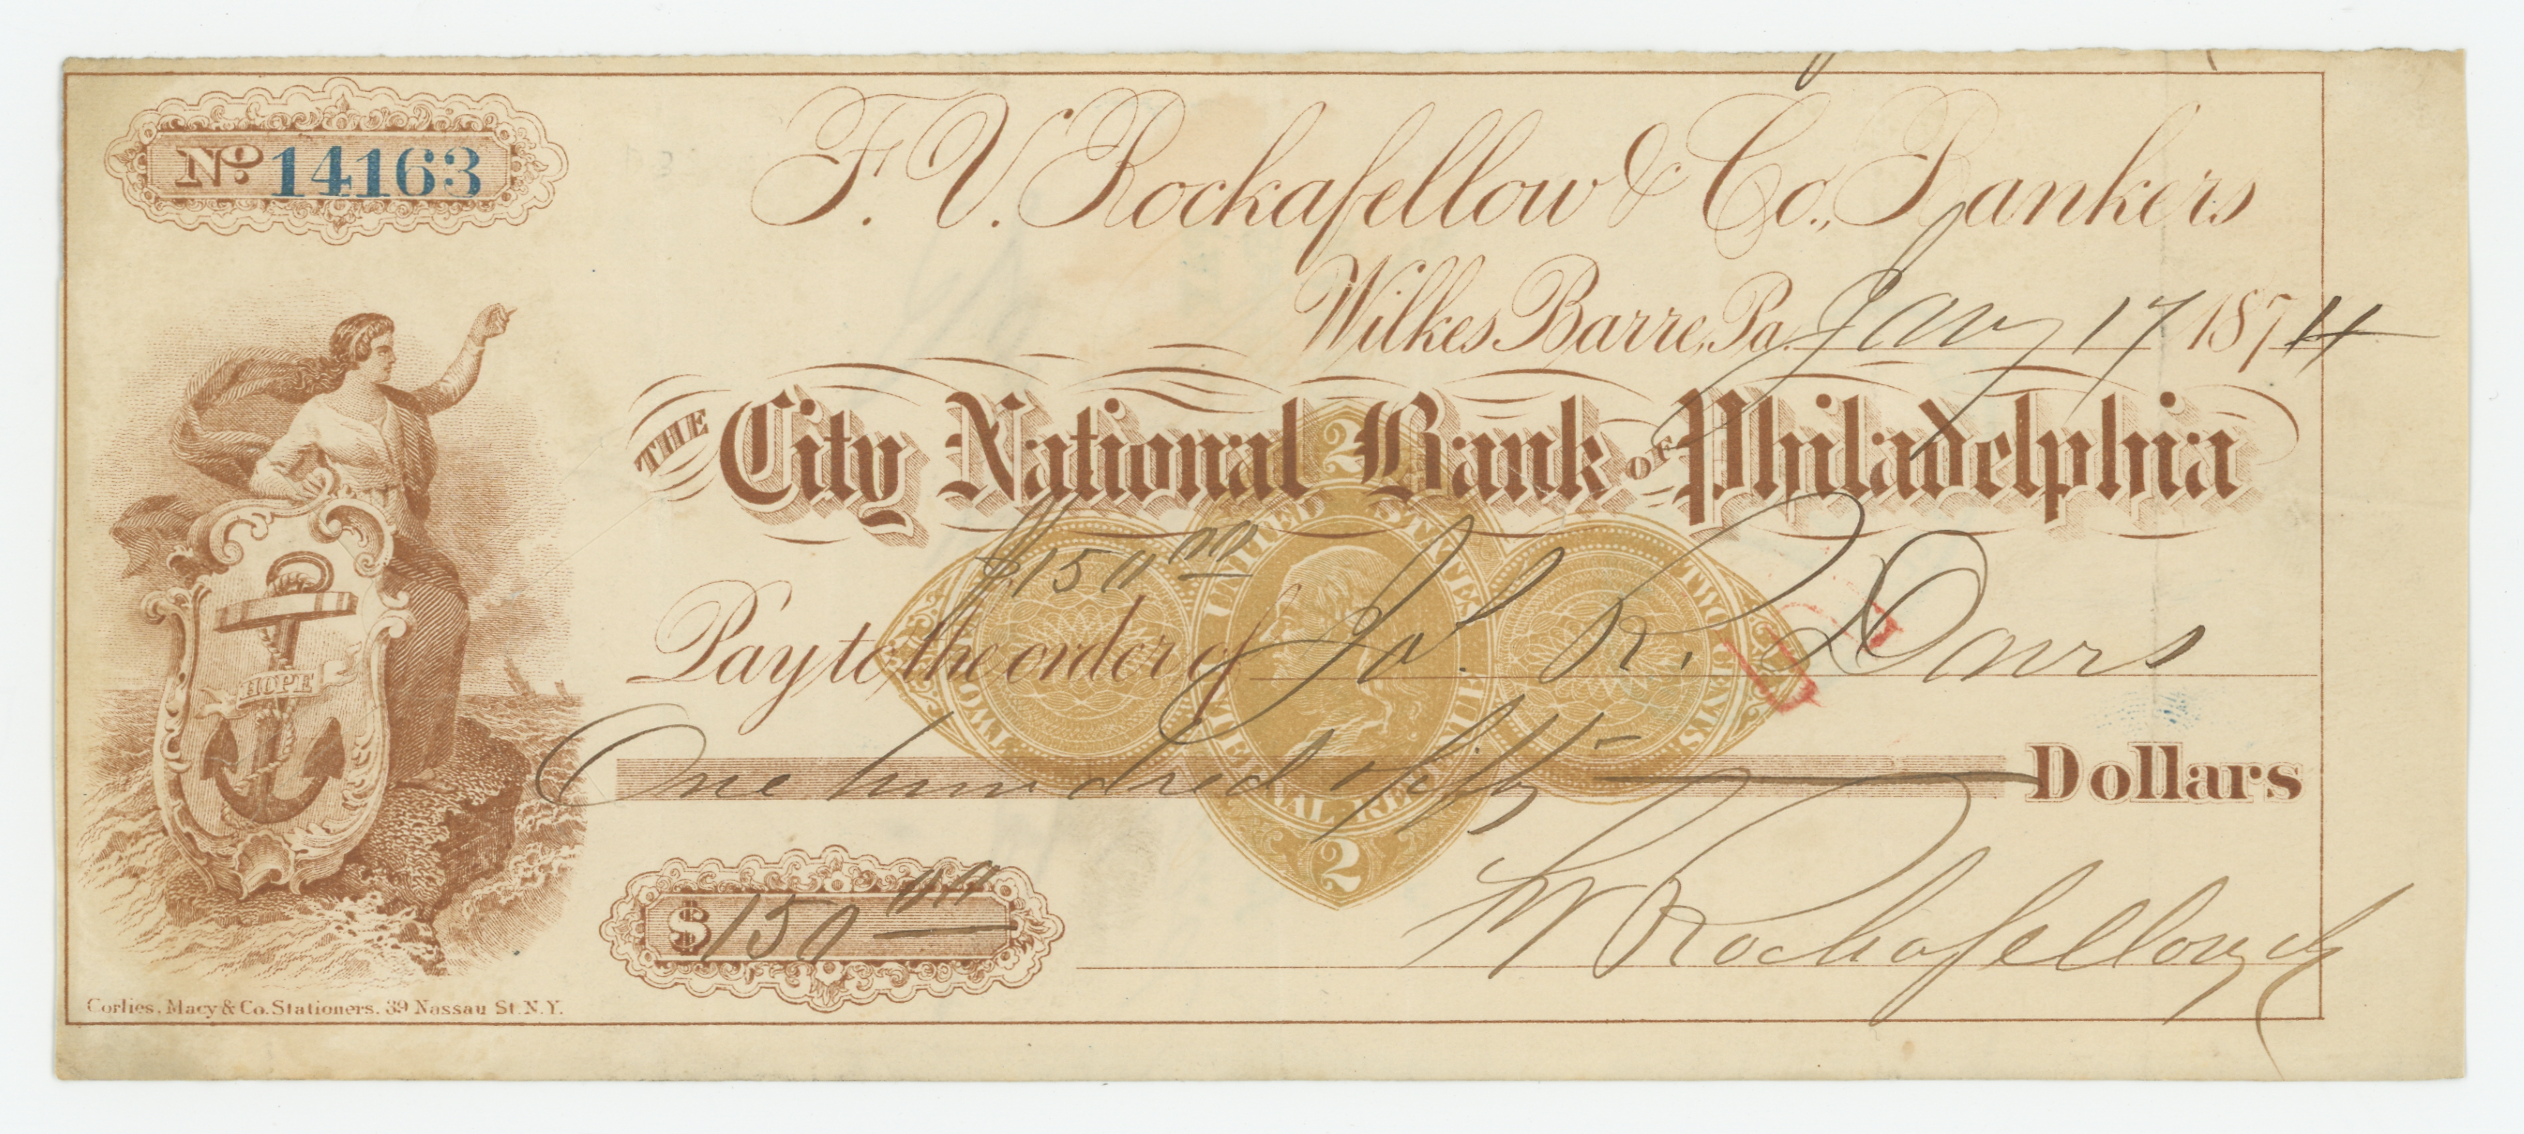 No 14163
F. V. Rockafellow & Co., Bankers
Wilkes Barre, Pa. Jany 17 1874
THE City National Bank OF Philadelphia
$150 00
Pay to the order of Jos. R. Davis
One hundred fifty Dollars
$150 00
F V Rockafellow & Co
HOPE
2
UNITED STATES
TWO CENTS
TWO CENTS.
INTERNAL REVENUE
2
Corlies, Macy & Co. Stationers, 39 Nassau St. N.Y.